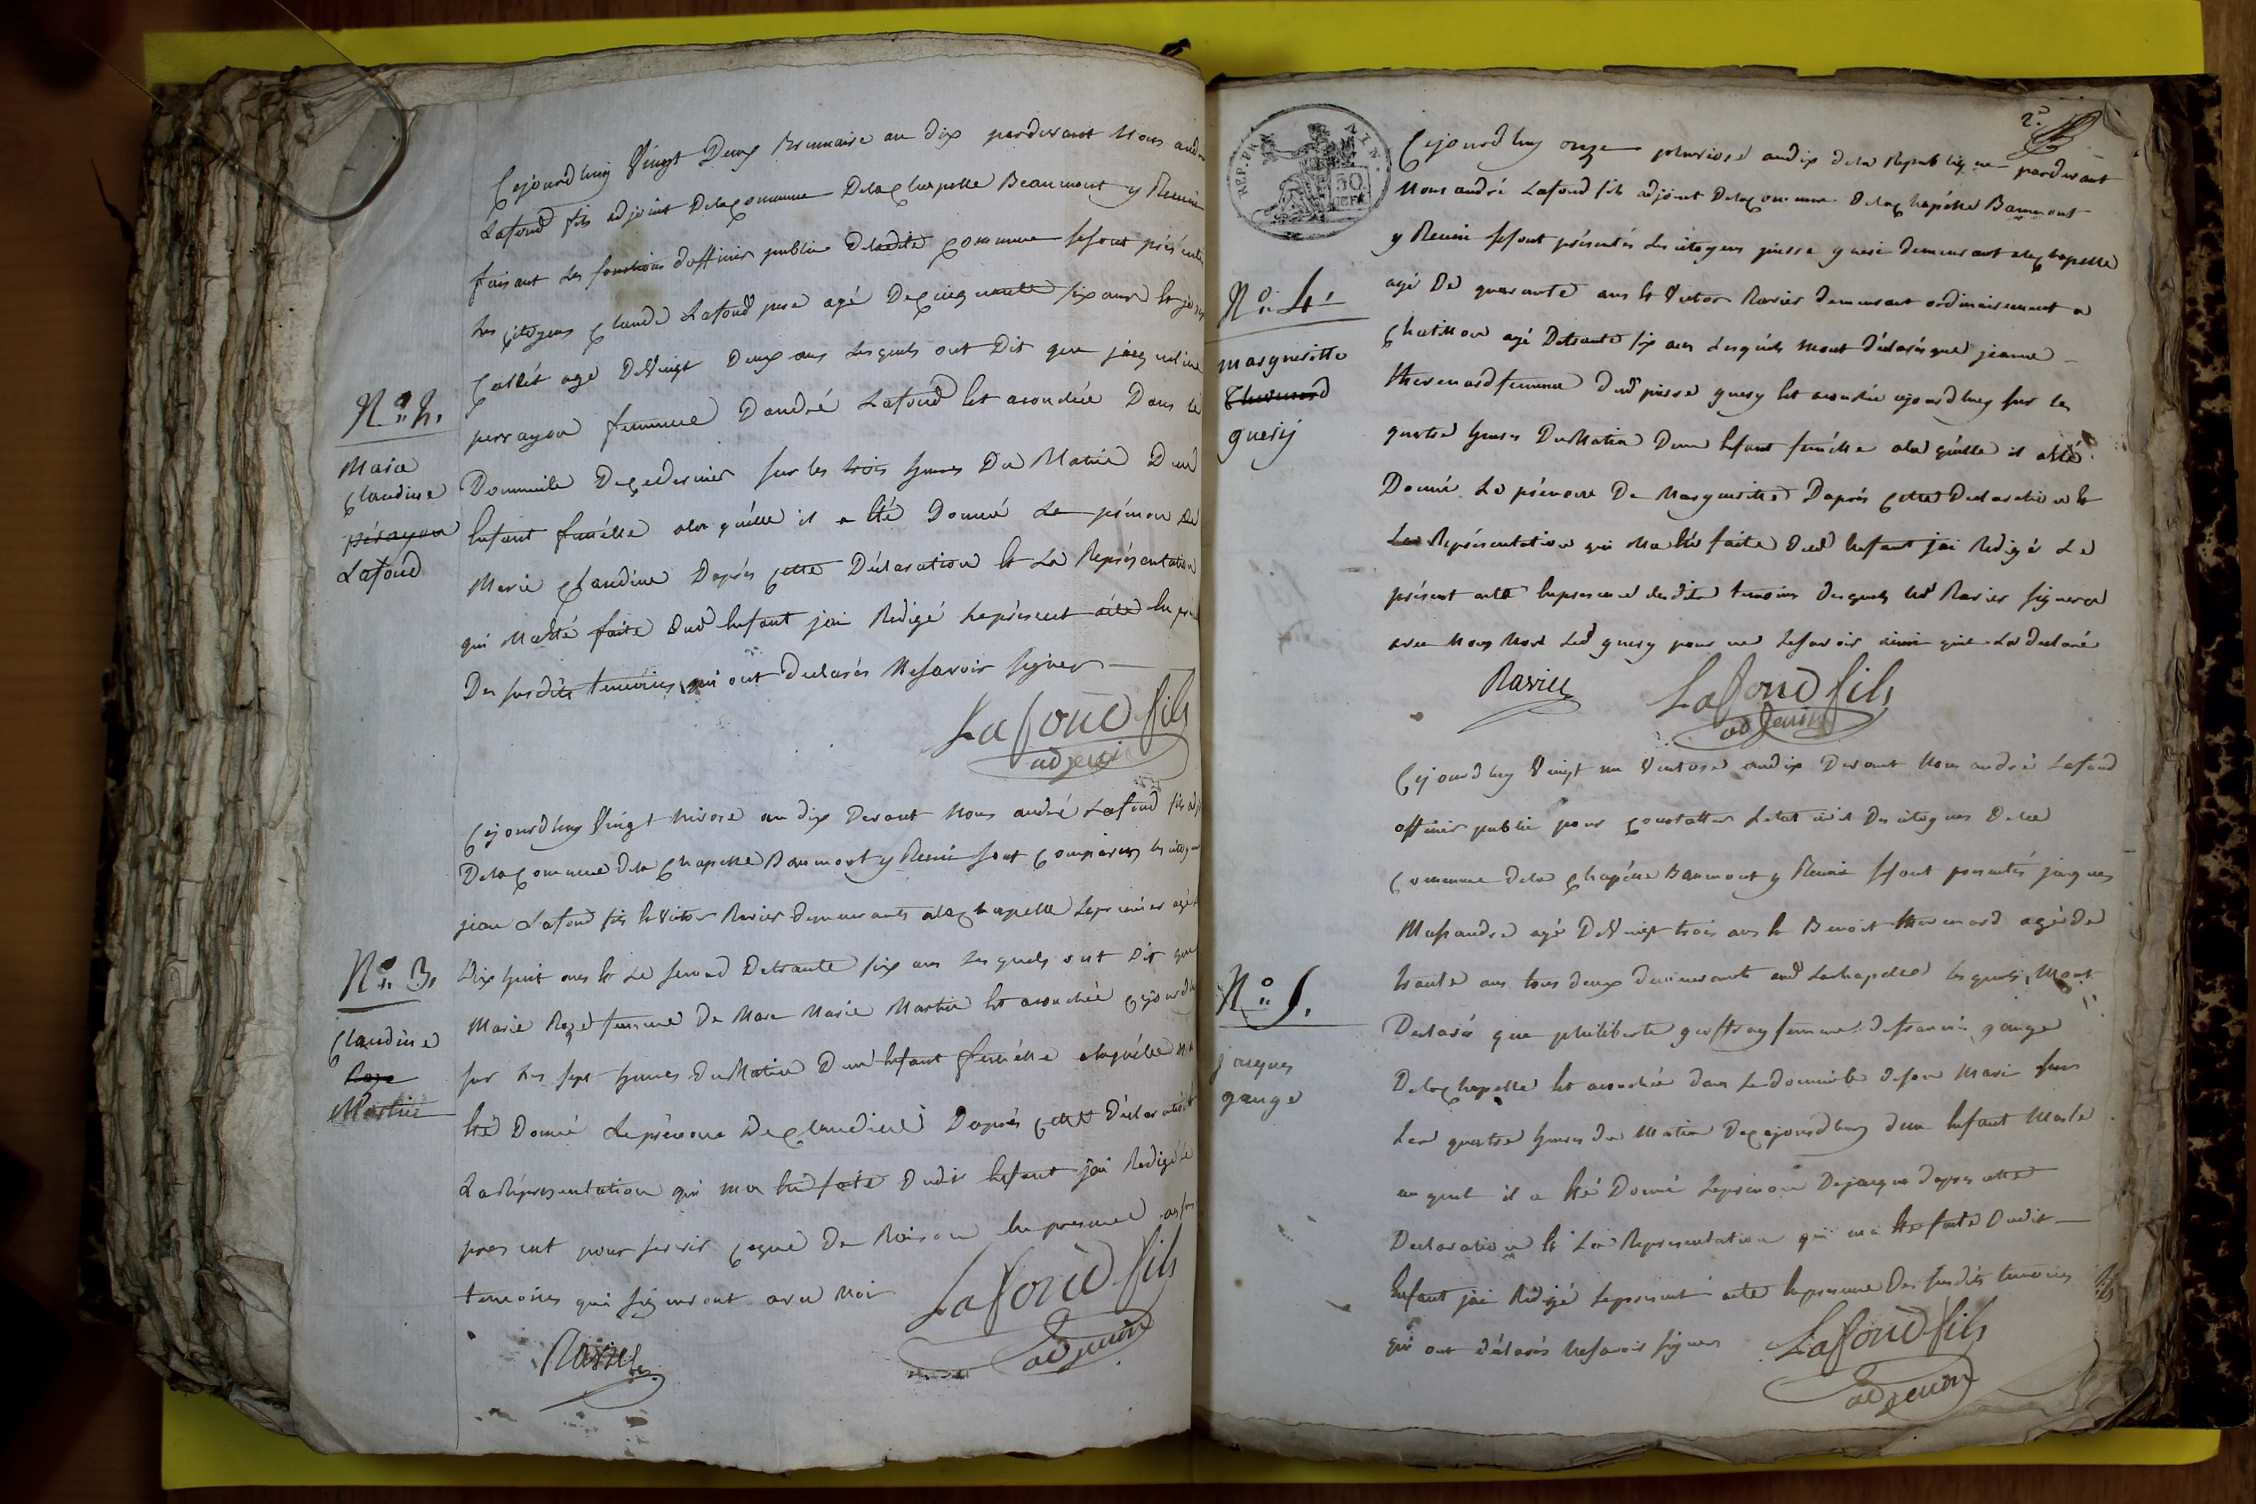 Cejourdhuy Vingt Deux Brumaire an dix pardevant Nous andré
Lafond fils adjoint Delacommune Delachapelle Beaumont y Reunie
faisant Les fonctions dofficier public deladite commune sesont présentés
Les citoyens Claude Lafond pere agé Decinquante six ans et
agé DeVingt Deux ans Lesquels ont Dit que jacqueline
perrayon femmme Dandré Lafond est acouchée Dans le
Domicile Decedernier sur les trois heures Du Matin D'un
Enfant femélle alaquélle il a été Donné Le prénom de
Marie Claudine Daprés cette Déclaration et La Représentation
qui Maété faite Dud Enfant jai Redigé Leprésent acte En présence
Des susdits temoins qui ont declarés Nesavoir signer
Lafond fils
adjoint
N° 2.
Marie
Claudine
pérayon
Lafond
Cejourdhuy Vingt nivose an dix Devant Nous andré Lafond fils adj
Delacommune Dela Chapelle Beaumont y Reunie sont comparus les citoyens
jean Lafond fils et Victor Ravier demeurants alachapelle Lepremier agé de
Dix huit ans et Le second Detrante six ans Lesquels ont Dit que
Marie Roze femme De Marie Martin est acouchée cejourdhuy
sur Les sept heures duMatin D'un Enfant femélle alaquélle il a
été Donné Leprénom DeClaudine Daprés cette Déclaration et
LaRépresentation qui ma été faite Dudit Enfant jai Redigé Le
present pour servir ceque De Raison En presence
temoins qui signeront avec Moi
Ravier
Lafond fils
adjoint
N° 3.
Claudine
Roze
Martin
2.e
REP. FRA.
AIN.
50
N° 4.
margueritte
Thevenard
guery
Cejourdhuy onze pluviose andix dela Republique pardevant
Nous andré Lafond fils adjoint Delacommune Delachapélle Baumont
y Reunie sesont présentés Les citoyens pierre guerie demeurant alachapelle
agé De quarante ans et Victor Ravier demeurant ordinairement a
Chatillon agé Detrante six ans Lesquels mont déclarés que jeanne
thevenard femme dud pierre guery est acouchée cejourdhuy sur les
quatre heures DuMatin Dun Enfant femélle alaquélle il aété
Donné Le prénom De Margueritte Daprés cette Declaration et
La Représentation qui Ma été faite Dud Enfant jai Redigé Le
présent acte Enpresence desdits temoins desquels led Ravier signera
avec Nous Non Led guery pour ne Lesavoir ainsi quil La declaré
Ravier
Lafond fils
adjoint
Cejourdhuy Vingt un Ventose andix Devant Nous andré Lafond
officier public pour constatter Letat civil Des citoyens Dela
commune dela Chapélle Baumont y Reunie sesont presentés jacques
agé DeVingt trois ans et Benoit thevenard agé de
trante ans tous deux demeurants aud Lachapelle lesquels Mont
Declarés que philiberte geoffray femme defrancois gauge
Delachapelle est acouchée dans Ledomicile deson Mari sur
Les quatre heures du Matin Decejourdhuy d'un Enfant Masle
auquel il a été Donné Leprenom Dejacque dapres cette
Declaration et La Representation qui ma été faite Dudit
Enfant jai Redigé Lepresent acte Enpresence Des susdits temoins
qui ont déclarés Nesavoir signer
Lafond fils
adjoint
N° 5.
jacques
gauge